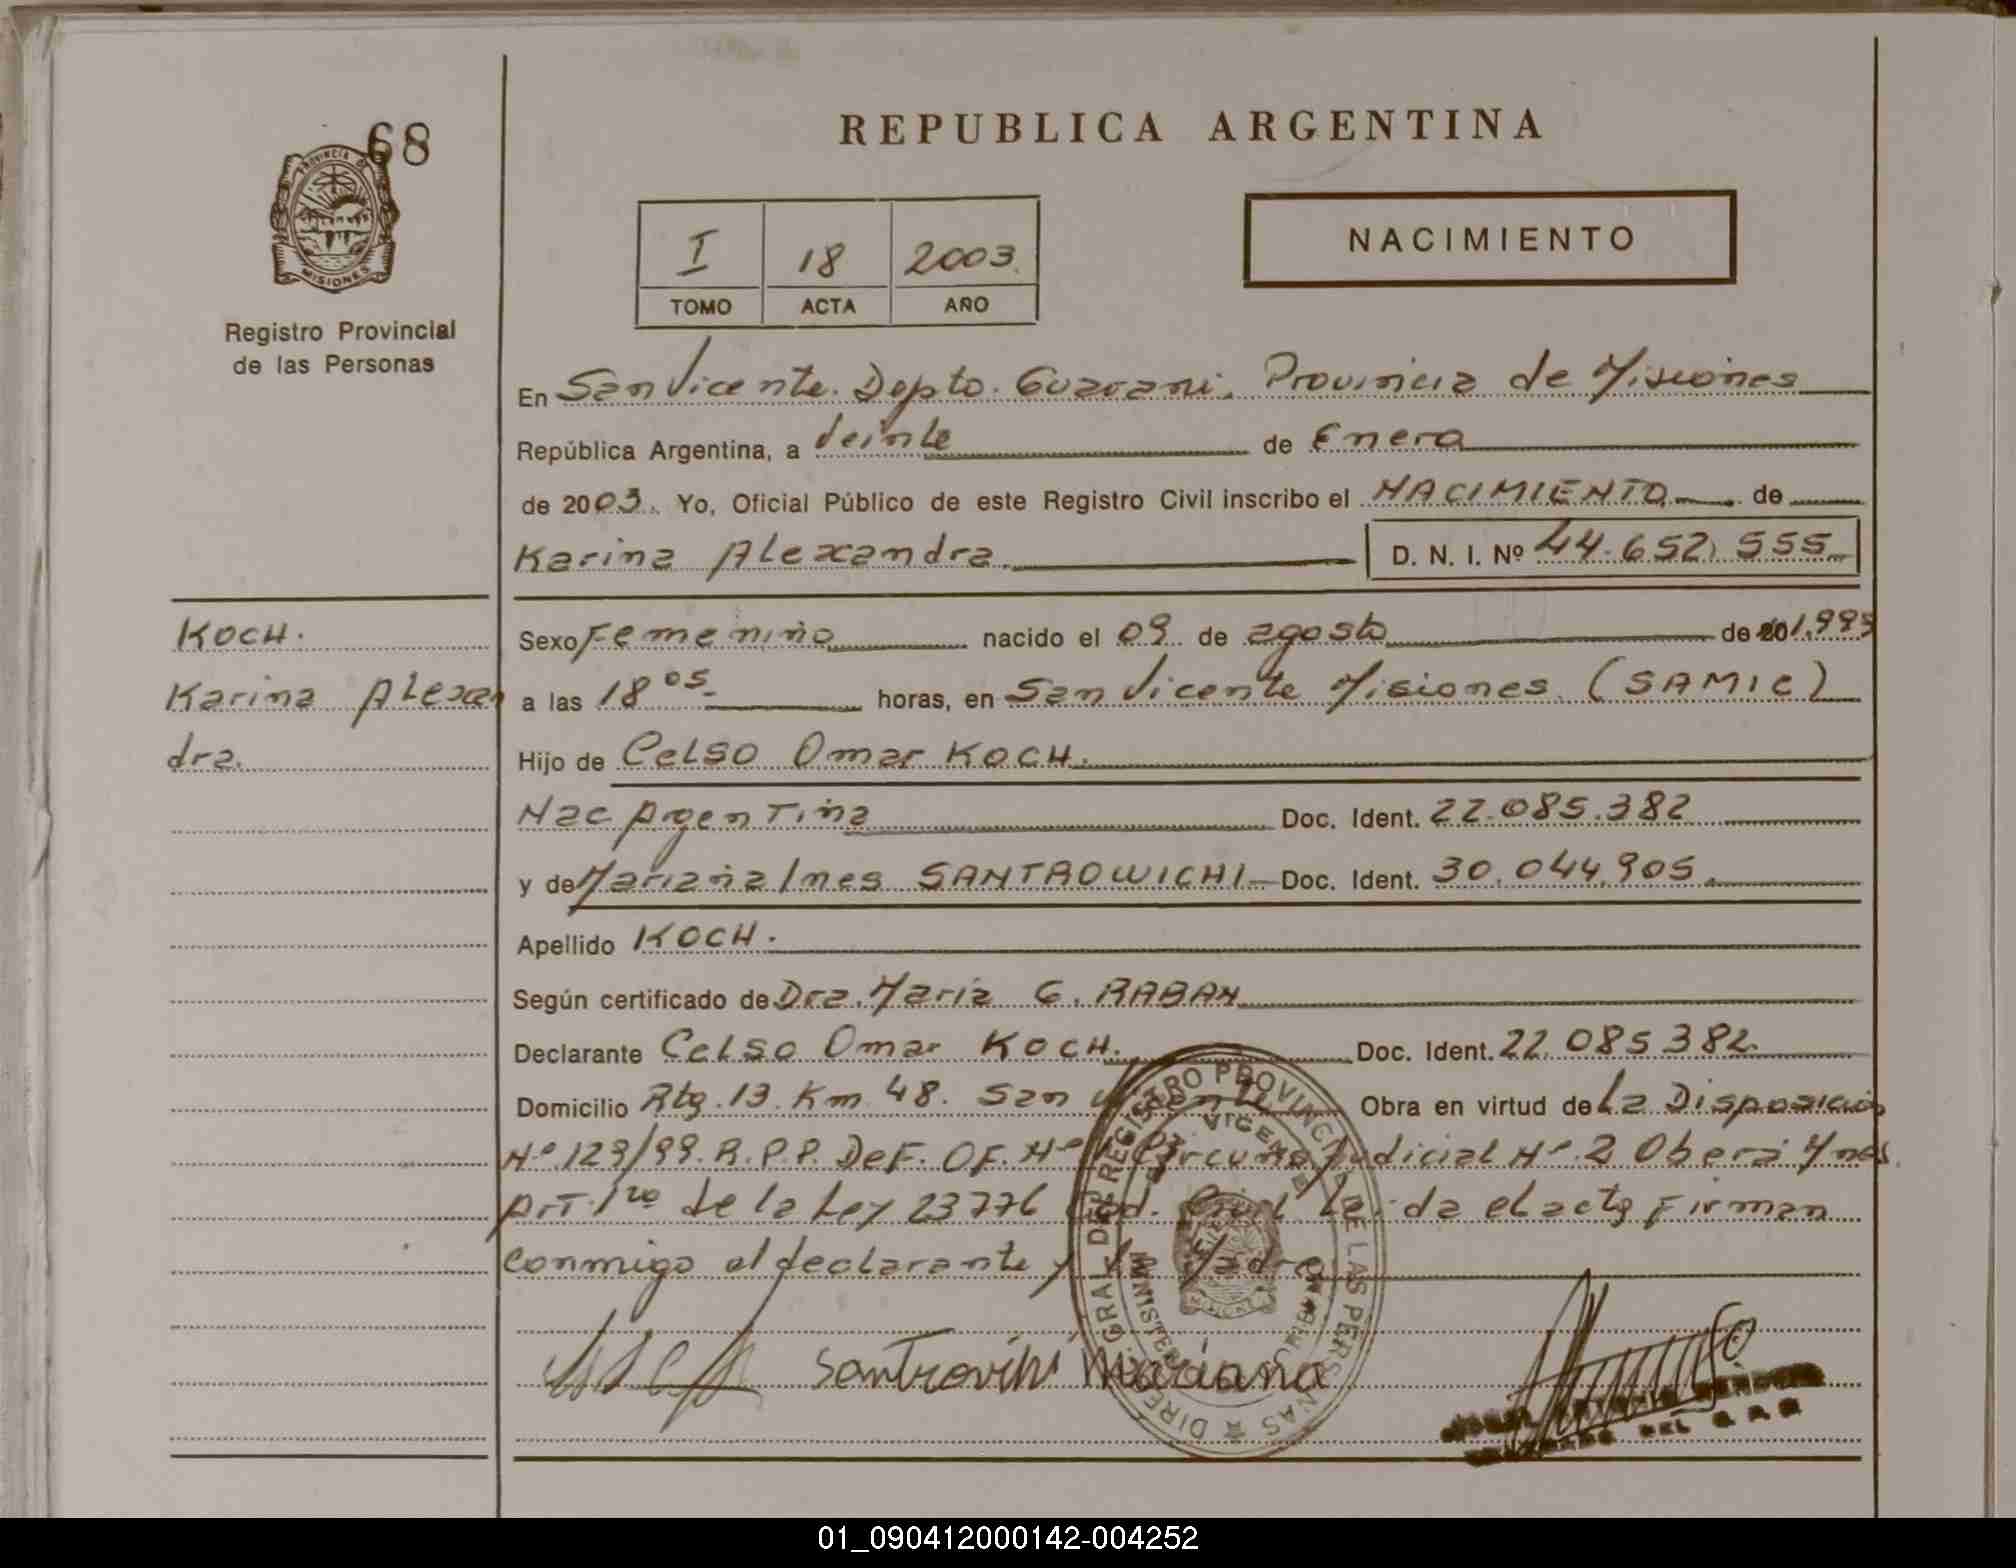 68
PROVINCIA DE
MISIONES
Registro Provincial
de las Personas
REPUBLICA ARGENTINA
I 18 2003
TOMO ACTA AÑO
NACIMIENTO
En San Vicente. Depto. Guarani. Provincia de Misiones
República Argentina, a Veinte de Enero
de 2003. Yo, Oficial Público de este Registro Civil inscribo el NACIMIENTO de
Karina Alexandra. D. N. I. Nº 44.652.555
KOCH.
Karina Alexan
dra.
Sexo Femenino nacido el 09 de agosto de 20 1.99
a las 18 05 horas, en San Vicente Misiones (SAMIC)
Hijo de Celso Omar KOCH.
Nac Argentina Doc. Ident. 22.085.382
y de Mariana Ines SANTROWICHI Doc. Ident. 30.044.905.
Apellido KOCH.
Según certificado de Dra. Maria G. RABAN
Declarante Celso Omar KOCH. Doc. Ident. 22.085.382.
Domicilio Rta. 13. Km. 48. San Vicente Obra en virtud de La Disposición
Nº 129/99. R.P.P. DEF. OF. Nº Circuns Judicial Nº 2 Oberá Mnes.
Art. 1ro de la Ley 23776 Cod. Civil Leida el acta Firman
conmigo el declarante y la Madre
Santrovihi Mariana
DIREC. GRAL. DEL REGISTRO PROVINCIAL DE LAS PERSONAS
VICENTE
MISIONES
01_090412000142-004252